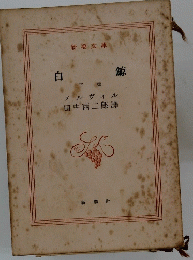 新潮文庫
白鯨
メルヴィル
田中西二郎譯
新潮社